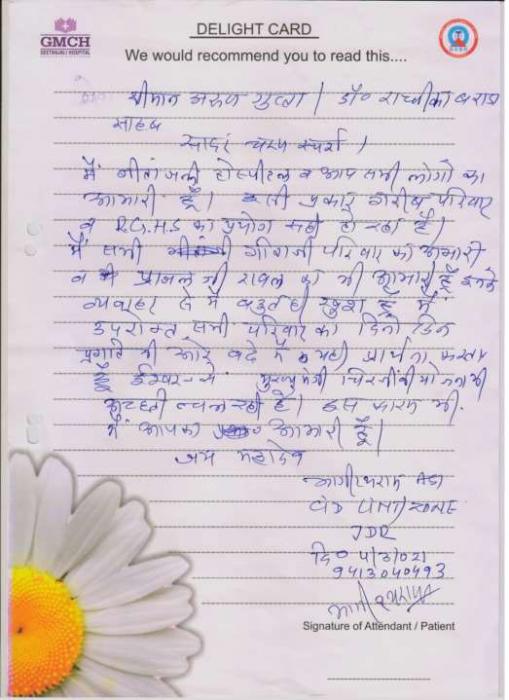 GMCH
GEETANJALI HOSPITAL
DELIGHT CARD
We would recommend you to read this....
श्रीमान अरुण गुप्ता / डॉ०
साहब
सादर चरण स्पर्श ।
मैं गीतांजली होस्पीटल व आप सभी लोगो का
आभारी हूँ। इसी प्रकार गरीब परिवार
व R.G.H.S का प्रयोग सही हो रहा है।
मैं सभी परिवार का आभारी
व जी रावल का भी आभारी हूँ इनके
व्यवहार से मैं बहुत ही खुश हूँ मैं
उपरोक्त सभी परिवार का दिनो दिन
प्रगति की ओर बढे मैं यही प्रार्थना करता
हूँ ईश्वर से मुख्यमंत्री चिरंजीवी योजना भी
अच्छी चल रही है। इस कारण भी
मैं आपका आभारी हूँ।
जय महादेव
ASI
CID ZONE
JDR
दि० 4/3/021
9413040493
Signature of Attendant / Patient